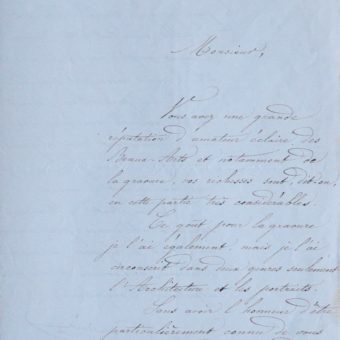 Monsieur,
Vous avez une grande
réputation d'amateur éclairé des
Beaux-Arts et notamment de
la gravure, vos richesses sont, dit-on,
en cette partie très considérables.
Ce goût pour la gravure
je l'ai également, mais je l'ai
circonscrit dans deux genres seulement
l'Architecture et les portraits.
Sans avoir l'honneur d'être
particulièrement connu de vous